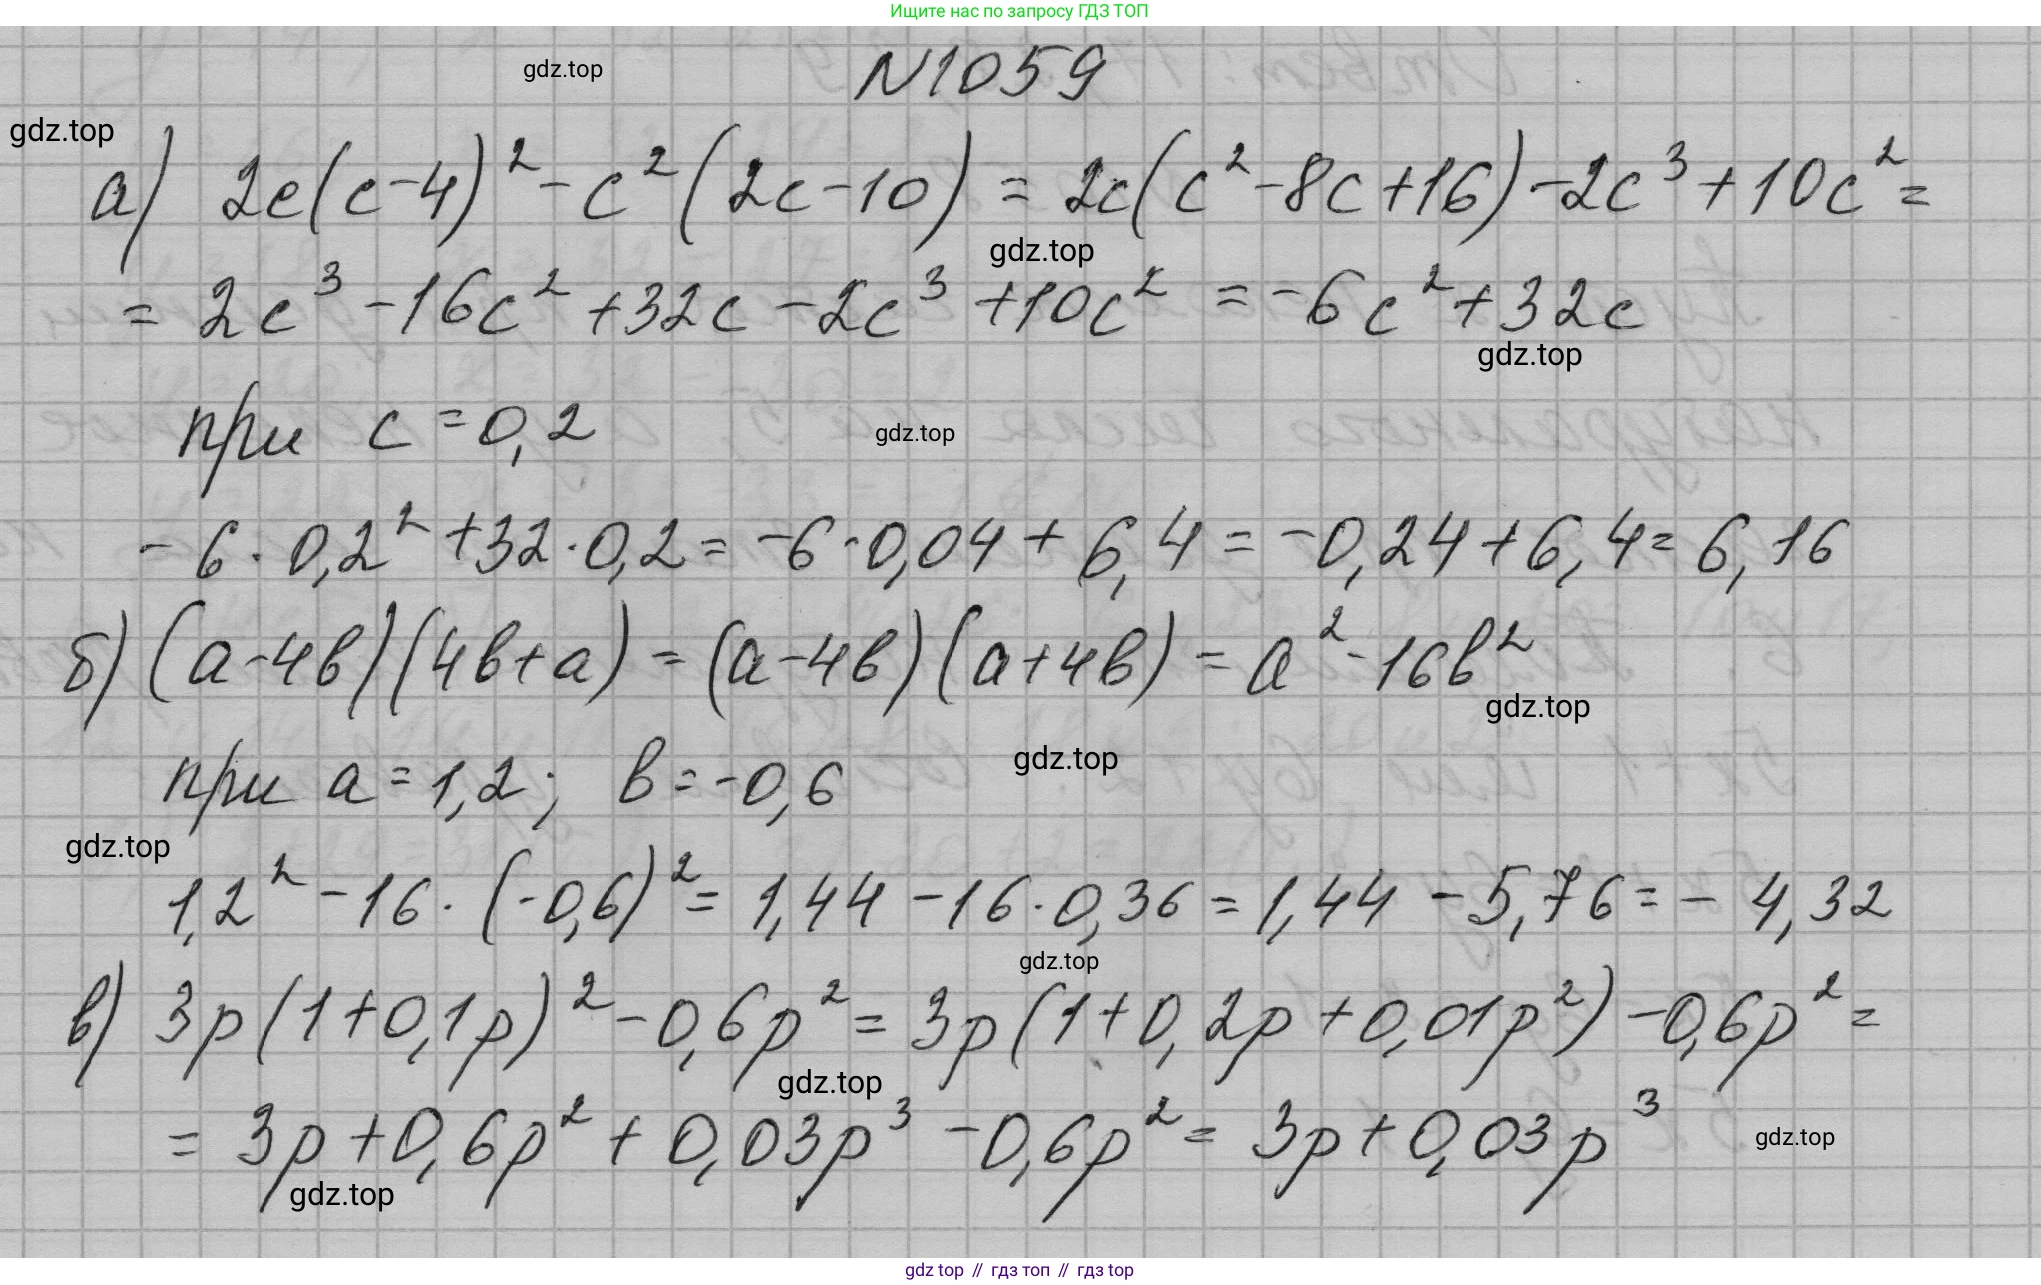 Ищите нас по запросу ГДЗ ТОП
N1059
gdz.top
gdz.top
а) 2c(c-4)² - c²(2c-10) = 2c(c²-8c+16) - 2c³ + 10c² =
gdz.top
= 2c³ - 16c² + 32c - 2c³ + 10c² = -6c² + 32c
gdz.top
при c = 0,2
gdz.top
-6·0,2² + 32·0,2 = -6·0,04 + 6,4 = -0,24 + 6,4 = 6,16
б) (a-4b)(4b+a) = (a-4b)(a+4b) = a² - 16b²
gdz.top
при a = 1,2; b = -0,6
gdz.top
gdz.top
1,2² - 16·(-0,6)² = 1,44 - 16·0,36 = 1,44 - 5,76 = -4,32
gdz.top
в) 3p(1+0,1p)² - 0,6p² = 3p(1+0,2p+0,01p²) - 0,6p² =
gdz.top
= 3p + 0,6p² + 0,03p³ - 0,6p² = 3p + 0,03p³
gdz.top
gdz.top
gdz top // гдз топ // гдз top